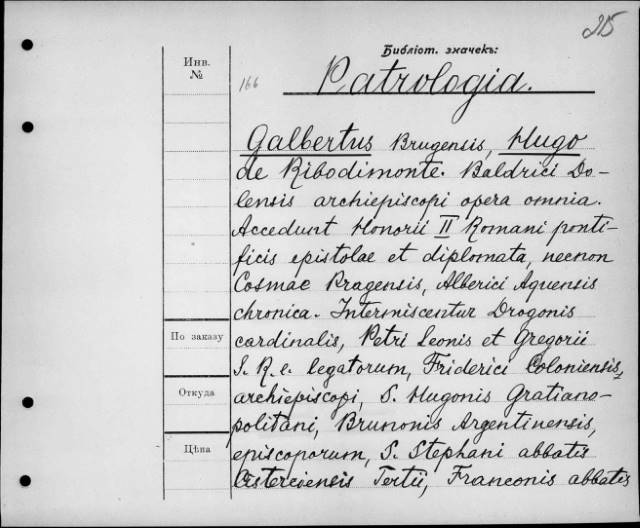 215
Библіот. значекъ:
Инв.
№
166
Patrologia.
Galbertus Brugensis, Hugo
de Ribodimonte. Baldrici Do-
lensis archiepiscopi opera omnia.
Accedunt Honorii II Romani ponti-
ficis epistolae et diplomata, necnon
Cosmae Pragensis, Alberici Aquensis
chronica. Intermiscentur Drogonis
cardinalis, Petri Leonis et Gregorii
S. R. e. legatorum, Friderici Coloniensis,
archiepiscopi, S. Hugonis Gratiano-
politani, Brunonis Argentinensis,
episcoporum, S. Stephani abbatis
Cisterciensis Tertii, Franconis abbatis
По заказу
Откуда
Цѣна